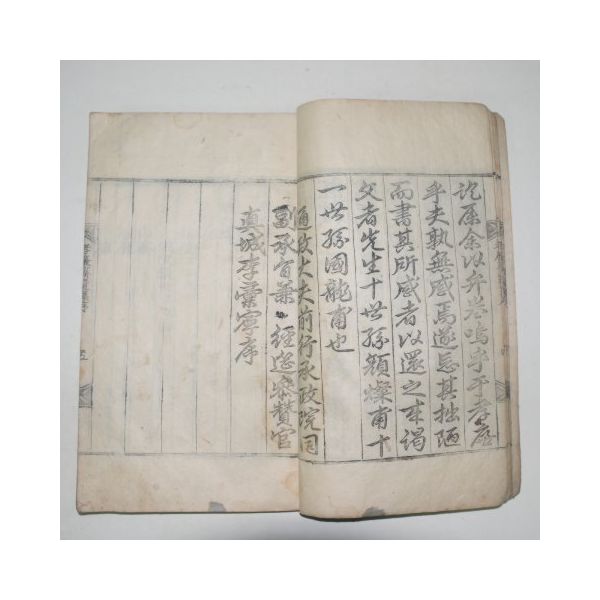 訖屬余以弁卷嗚乎平孝居
乎夫孰無感焉遂忘其拙陋
而書其所感者以還之來謁
父者先生十世孫顯燦甫十
一世孫國龍甫也
通政大夫前行承政院同
副承旨兼 經筵參贊官
真城李彙寧序
五